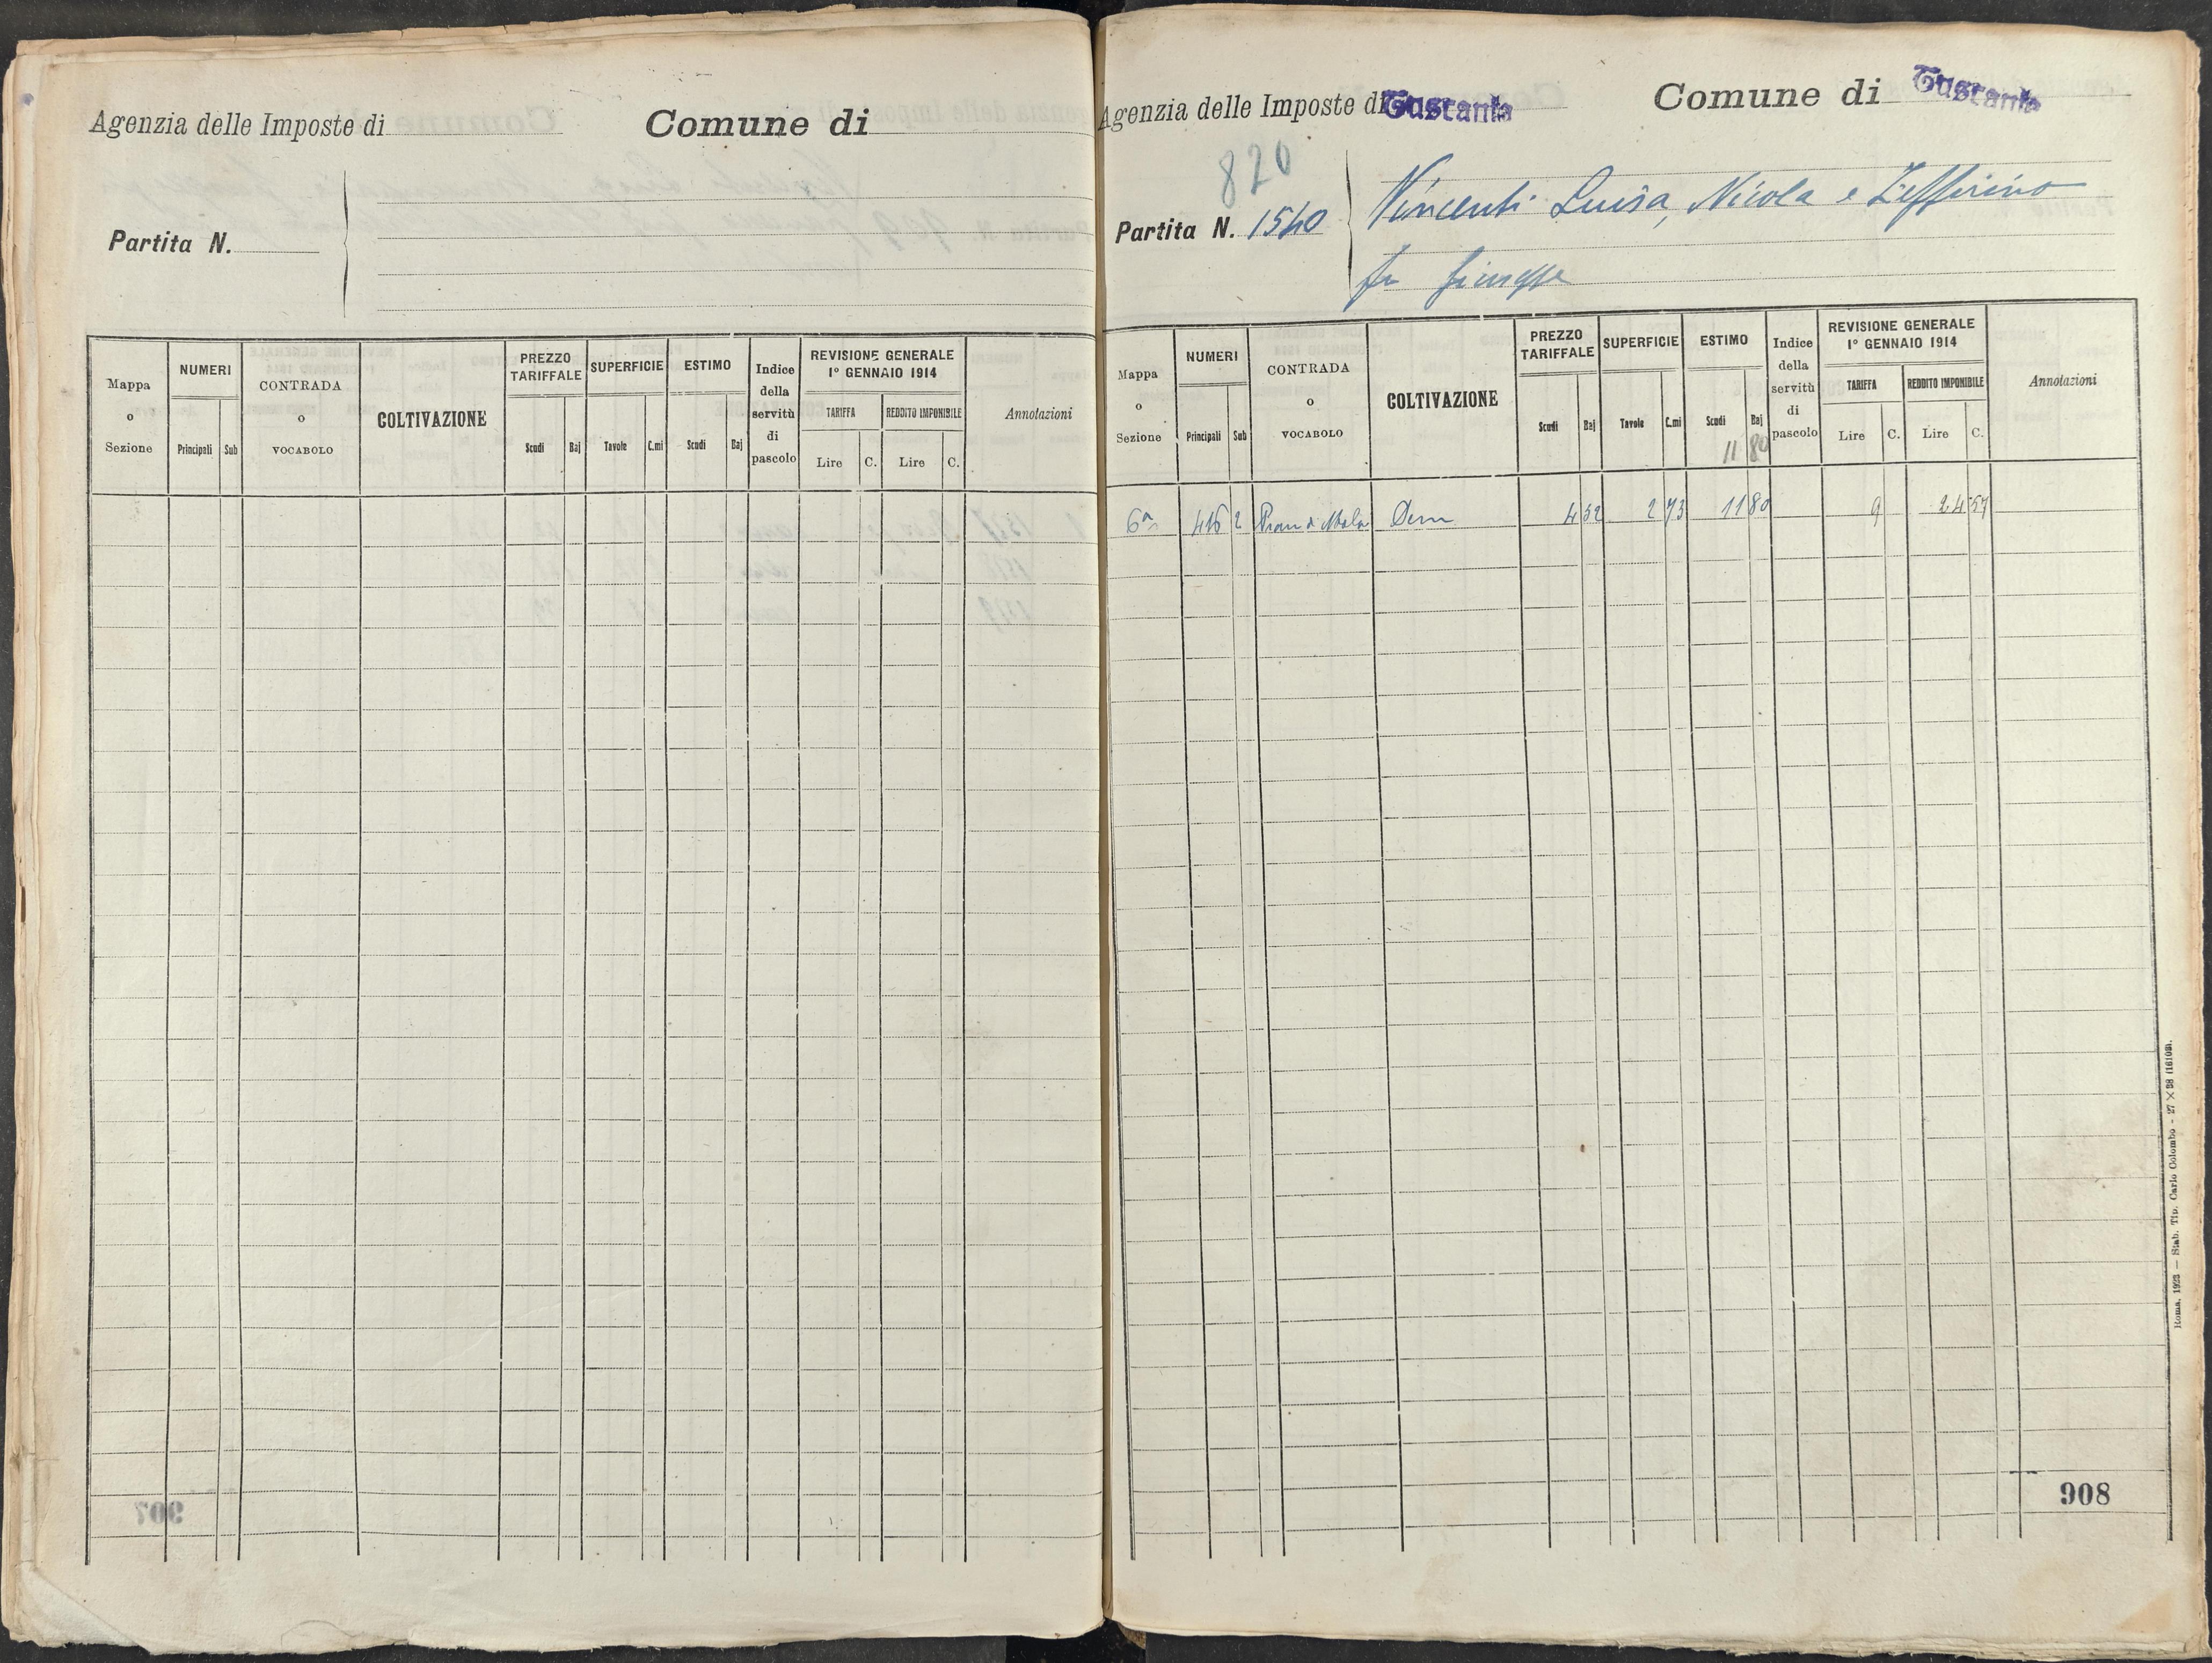 Agenzia delle Imposte di
Comune di
Partita N.
Mappa o Sezione
NUMERI
Principali
Sub
CONTRADA o VOCABOLO
COLTIVAZIONE
PREZZO TARIFFALE
Scudi
Baj
SUPERFICIE
Tavole
C.mi
ESTIMO
Scudi
Baj
Indice della servitù di pascolo
REVISIONE GENERALE
1º GENNAIO 1914
TARIFFA
Lire
C.
REDDITO IMPONIBILE
Lire
C.
Annotazioni
907
Agenzia delle Imposte di Tuscania
Comune di Tuscania
820
Partita N. 1540
Vincenti Luisa, Nicola e Zefferino
fu Giuseppe
Mappa o Sezione
NUMERI
Principali
Sub
CONTRADA o VOCABOLO
COLTIVAZIONE
PREZZO TARIFFALE
Scudi
Baj
SUPERFICIE
Tavole
C.mi
ESTIMO
Scudi
Baj
11 80
Indice della servitù di pascolo
REVISIONE GENERALE
1º GENNAIO 1914
TARIFFA
Lire
C.
REDDITO IMPONIBILE
Lire
C.
Annotazioni
6ª 416 2 Pian di Mola 4 32 2 73 11 80 9 24 57
908
Roma, 1923 — Stab. Tip. Carlo Colombo - 27 × 38 (16108).